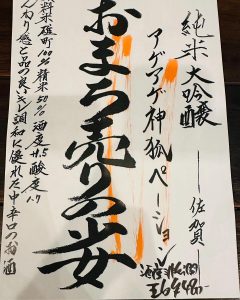 純米大吟醸 ―佐賀―
アゲアゲ神狐ペーション
おまち売りの少女
料米雄町100% 精米50% 酒度+4.5 酸度1.7
んわり感と品の良いキレ調和に優れた中辛口のお酒